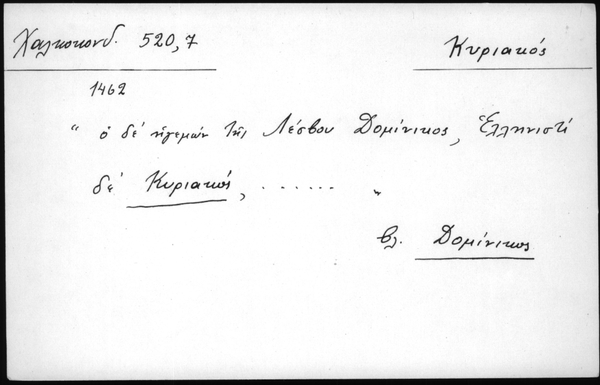 Χαλκοκονδ. 520,7
Κυριακός
1462
" ὁ δέ ἡγεμών τῆς Λέσβου Δομίνικος, Ἑλληνιστί
δέ Κυριακός, ...... "
βλ. Δομίνικος